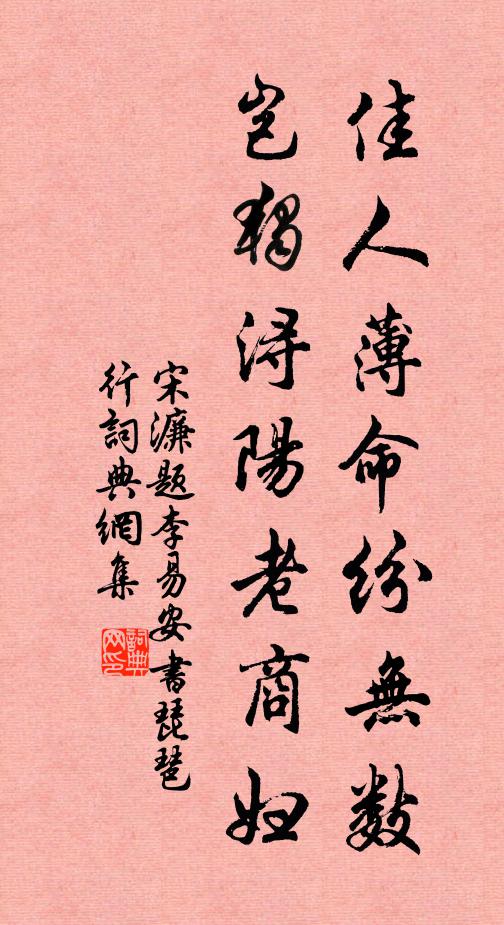 佳人薄命紛無數
豈獨潯陽老商婦
宋濂題李易安書琵琶
行詞典網集
詞典
网印